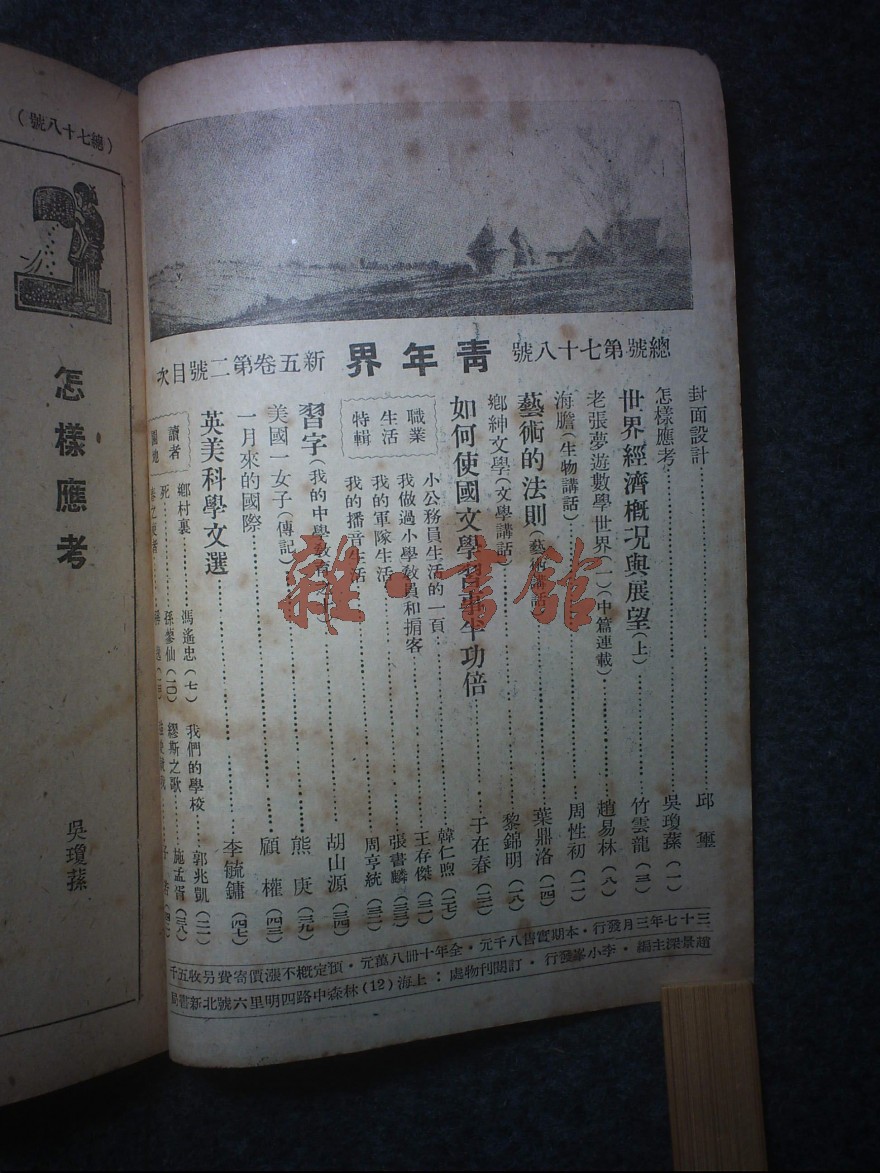 總號第七十八號 青年界 新五卷第二號目次
封面設計 邱璽
怎樣應考 吳瓊蓀(一)
世界經濟概況與展望(上) 竹雲龍(三)
老張夢遊數學世界(一)(中篇連載) 趙易林(八)
海膽(生物講話) 周性初(一一)
藝術的法則(藝術講話) 葉鼎洛(一四)
鄉紳文學(文學講話) 黎錦明(一八)
如何使國文學習事半功倍 于在春(二三)
職業生活特輯
小公務員生活的一頁 韓仁煦(二七)
我做過小學教員和掮客 王存傑(三一)
我的軍隊生活 張書麟(三三)
我的播音生活 周亨統(三二)
習字(我的中學教育 胡山源(三四)
美國一女子(傳記) 熊庚(三九)
一月來的國際 顧權(四三)
英美科學文選 李毓鏞(四七)
讀者園地
鄉村裏 馮遙忠(七) 我們的學校 郭兆凱(二一)
死 孫蓼仙(一〇) 繆斯之歌 施孟胥(三八)
三十七年三月發行・本期實售八千元・全年十冊八萬元・預定概不漲價寄費另收五千
趙景深主編・李小峯發行・訂閱刊物處:上海(12)林森中路四明里六號北新書局
(總七十八號)
怎樣應考
吳瓊蓀
雜・書館